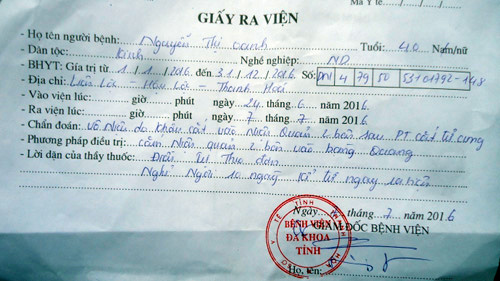 Mã Y tế
GIẤY RA VIỆN
- Họ tên người bệnh: Nguyễn Thị oanh Tuổi: 40 Nam/nữ
- Dân tộc: Kinh Nghề nghiệp: ND
- BHYT: Gía trị từ 1/1/2016 đến 31/12/2016 Số: DN 4 79 50
- Địa chỉ: Liên Lộc - Hậu Lộc - Thanh Hoá
- Vào viện lúc: giờ phút ngày 24 tháng 6 năm 2016
- Ra viện lúc: giờ phút ngày 7 tháng 7 năm 2016
- Chẩn đoán: vô Niệu do khâu cắt vào Niệu Quản 2 bên sau PT cắt tử cung
- Phương pháp điều trị: cắm Niệu quản 2 bên vào bàng Quang
- Lời dặn của thầy thuốc: Điều trị Theo đơn
Nghỉ Ngơi 10 ngày kể từ ngày ra viện
Ngày tháng 7 năm 2016
GIÁM ĐỐC BỆNH VIỆN
Y TẾ TỈNH
BỆNH VIỆN
ĐA KHOA
TỈNH
Họ, tên: